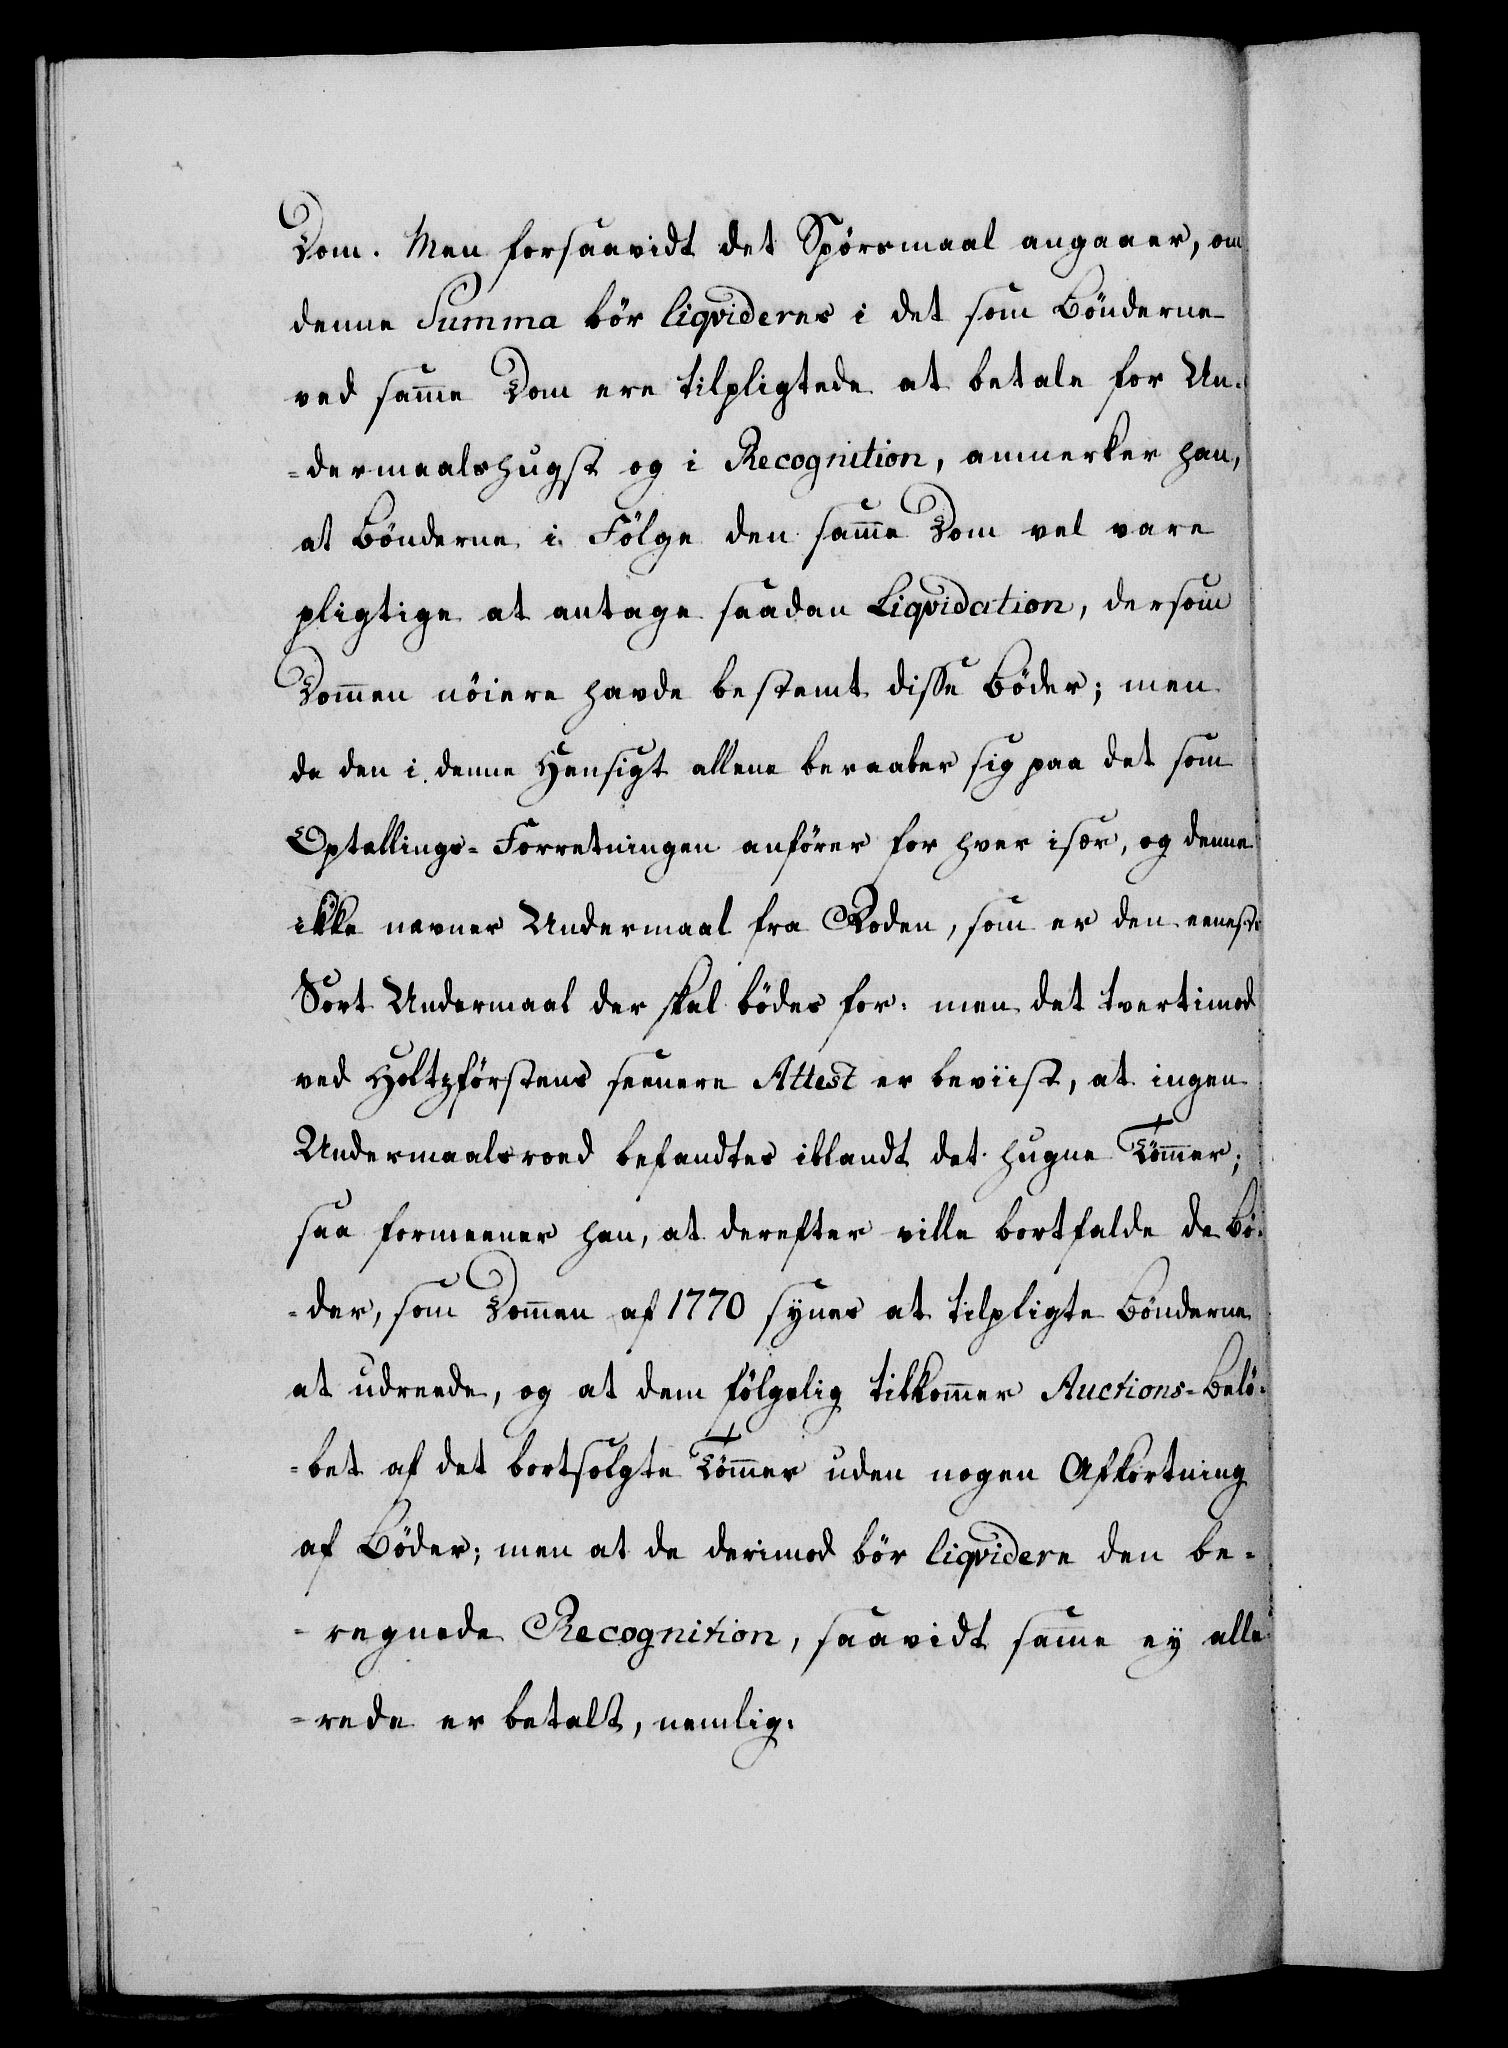 Dom. Men forsaavidt det Spörsmaal angaaer, om
denne Summa bör liqvideres i det som Bönderne
ved sam̄e Dom ere tilpligtede at betale for Un-
-dermaalshugst og i Recognition, anmerker han,
at Bönderne i Fölge den sam̄e Dom vel vare
pligtige at antage saadan Liqvidation, dersom
Dom̄en nöiere havde bestemt disse Böder; men
da den i denne Hensigt allene beraaber sig paa det som
Optellings-Forretningen anförer for hver især, og denne
ikke nævner Undermaal fra Roden, som er den eeneste
Sort Undermaal der skal bödes for: men det tvertimod
ved Holtzförstens seenere Attest er beviist, at ingen
Undermaalsroed befandtes iblandt det hugne Töm̄er;
saa formeener han, at derefter ville bortfalde de Bö-
-der, som Dom̄en af 1770 synes at tilpligte Bönderne
at udreede, og at dem fölgelig tilkom̄er Auctions-Belö-
-bet af det bortsolgte Töm̄er uden nogen Afkortning
af Böder; men at de derimod bör liqvidere den be-
-regnede Recognition, saavidt sam̄e ey alle-
-rede er betalt, nemlig: